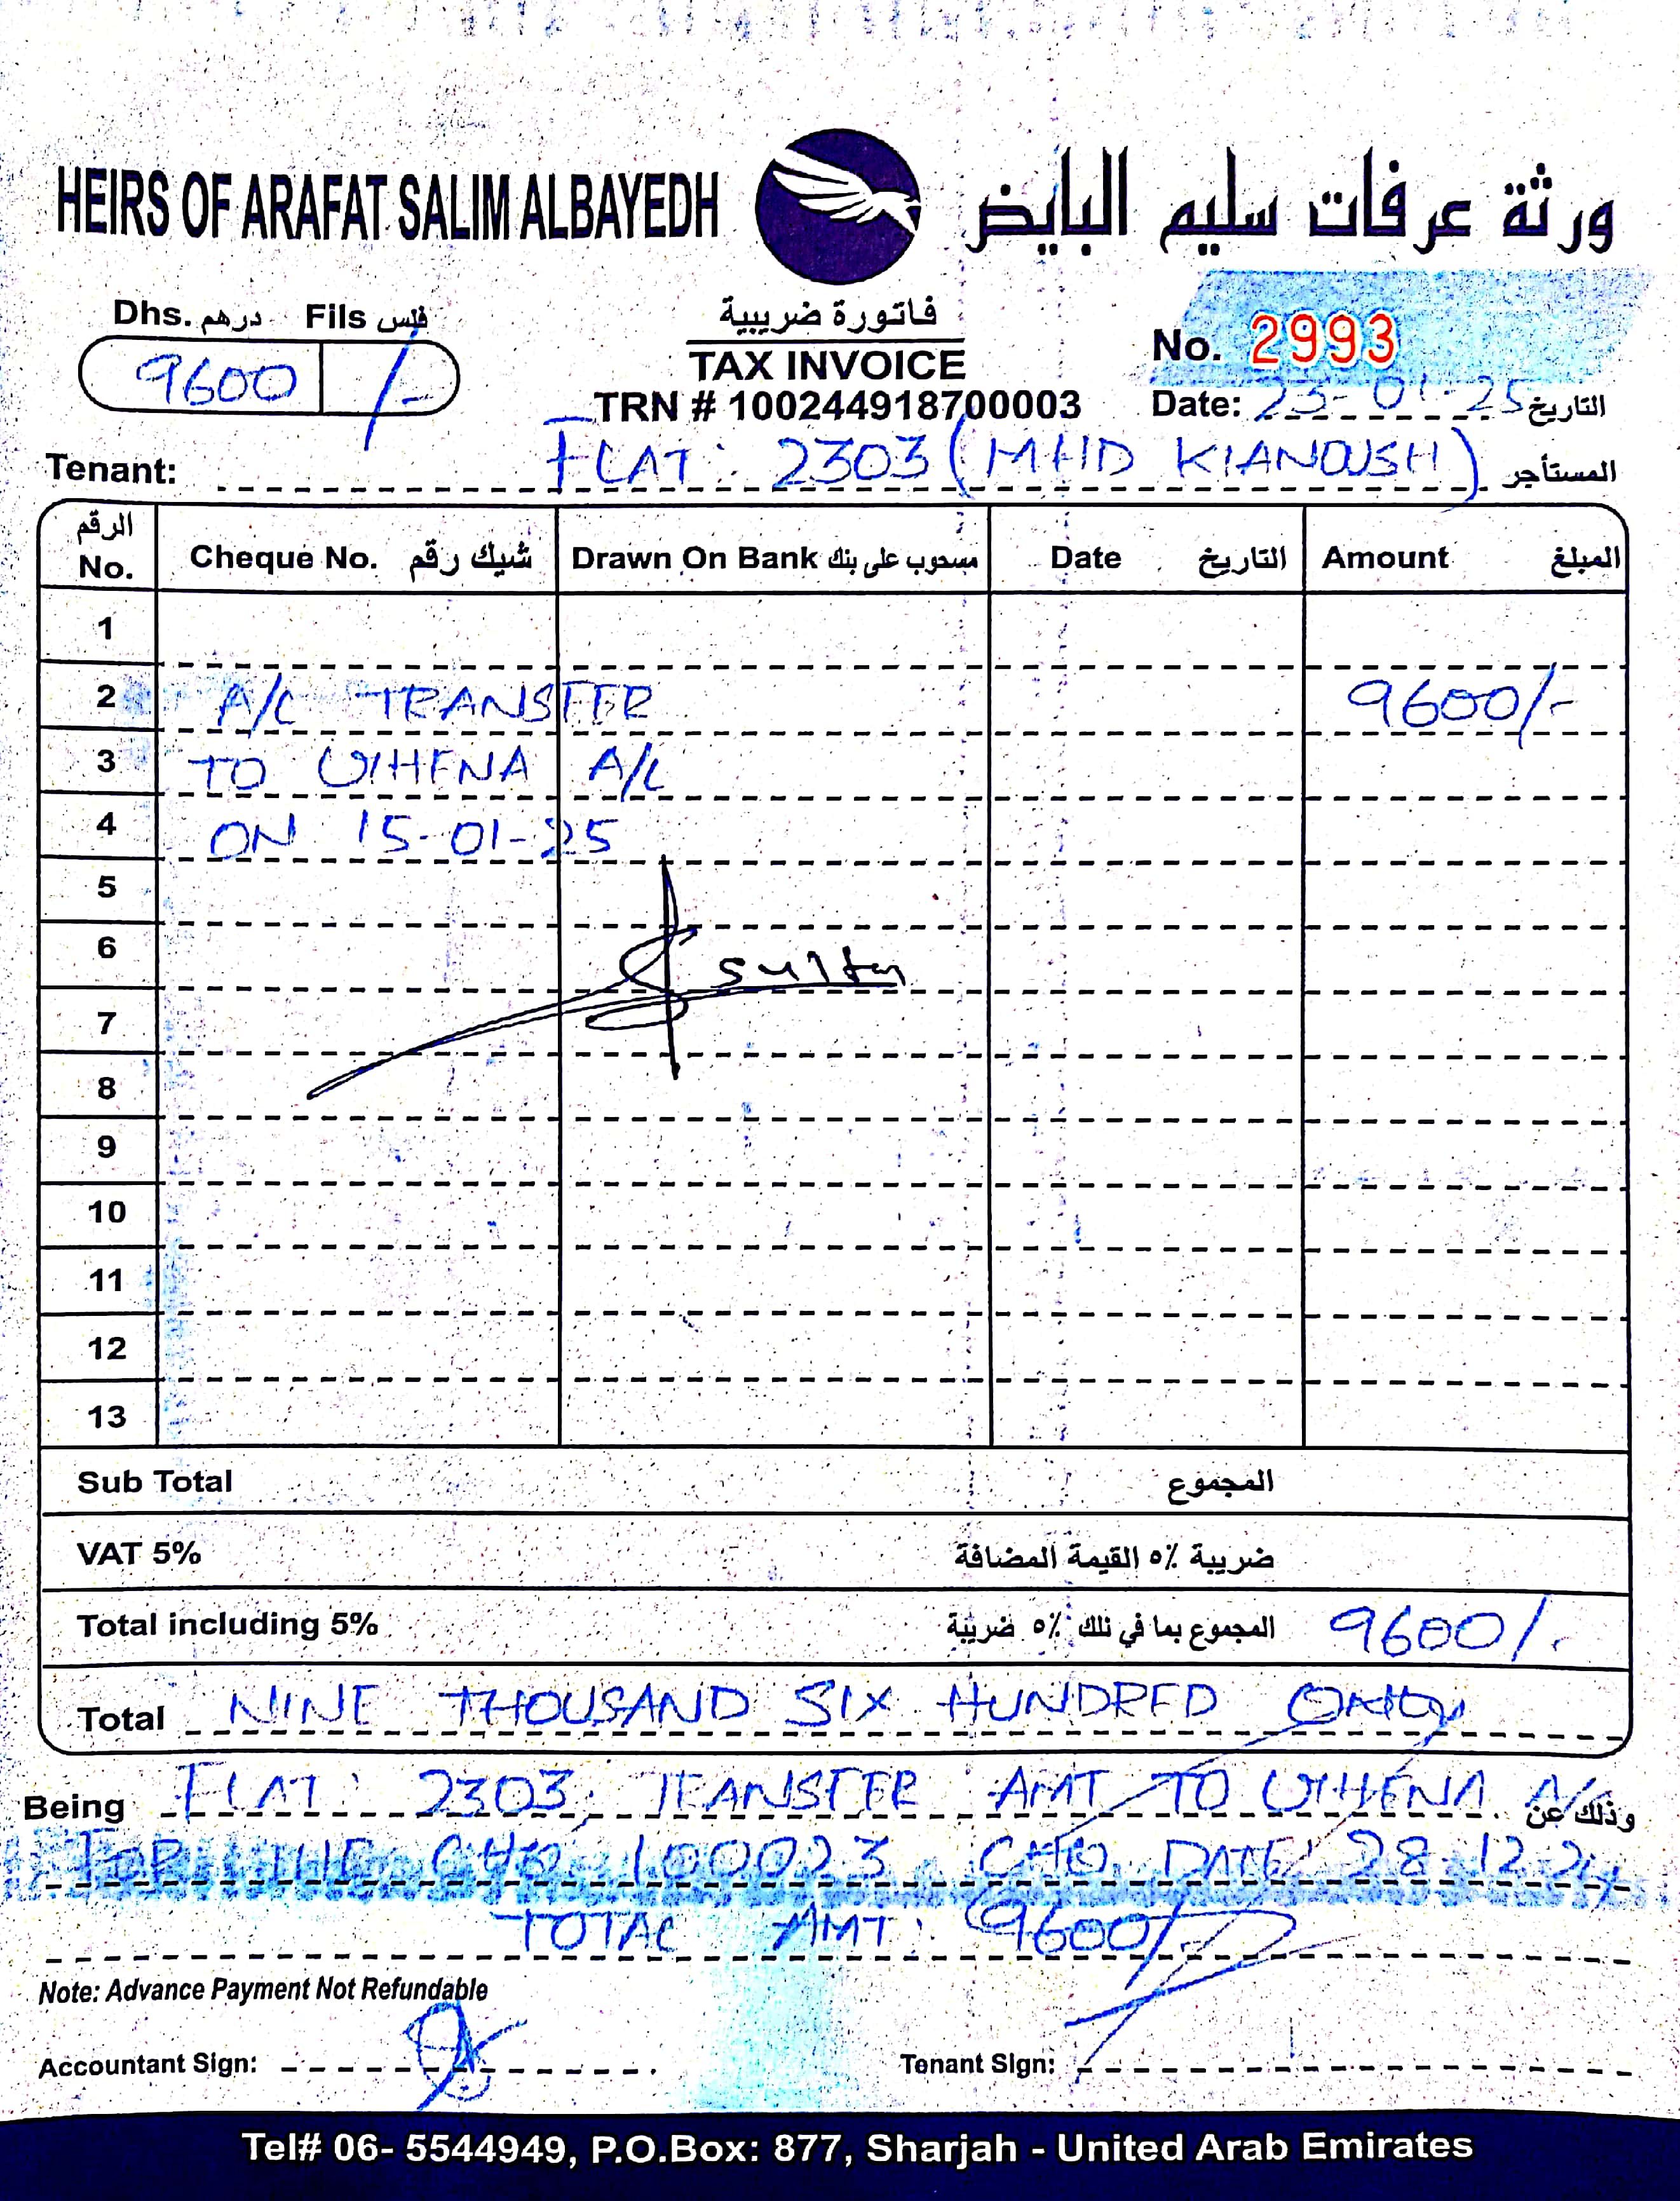 HEIRS OF ARAFAT SALIM ALBAYEDH ورثة عرفات سليم البايض
Dhs. درهم Fils فلس
9600 /-
فاتورة ضريبية
TAX INVOICE
TRN # 100244918700003
No. 2993
Date: 23-01-25 التاريخ
Tenant: FLAT: 2303 (MHD KIANOUSH) المستأجر
الرقم No. Cheque No. شيك رقم Drawn On Bank مسحوب على بنك Date التاريخ Amount المبلغ
1
2 A/C TRANSFER 9600/-
3 TO A/C
4 ON 15-01-25
5
6 sultan
7
8
9
10
11
12
13
Sub Total المجموع
VAT 5% ضريبة ٥٪ القيمة المضافة
Total including 5% المجموع بما في ذلك ٥٪ ضريبة 9600/-
Total NINE THOUSAND SIX HUNDRED ONLY
Being FLAT: 2303, TRANSFER AMT TO A/C وذلك عن
FOR THE CHQ 100023 CHQ DATE: 28-12-24
TOTAL AMT: 9600/-
Note: Advance Payment Not Refundable
Accountant Sign: Tenant Sign:
Tel# 06- 5544949, P.O.Box: 877, Sharjah - United Arab Emirates